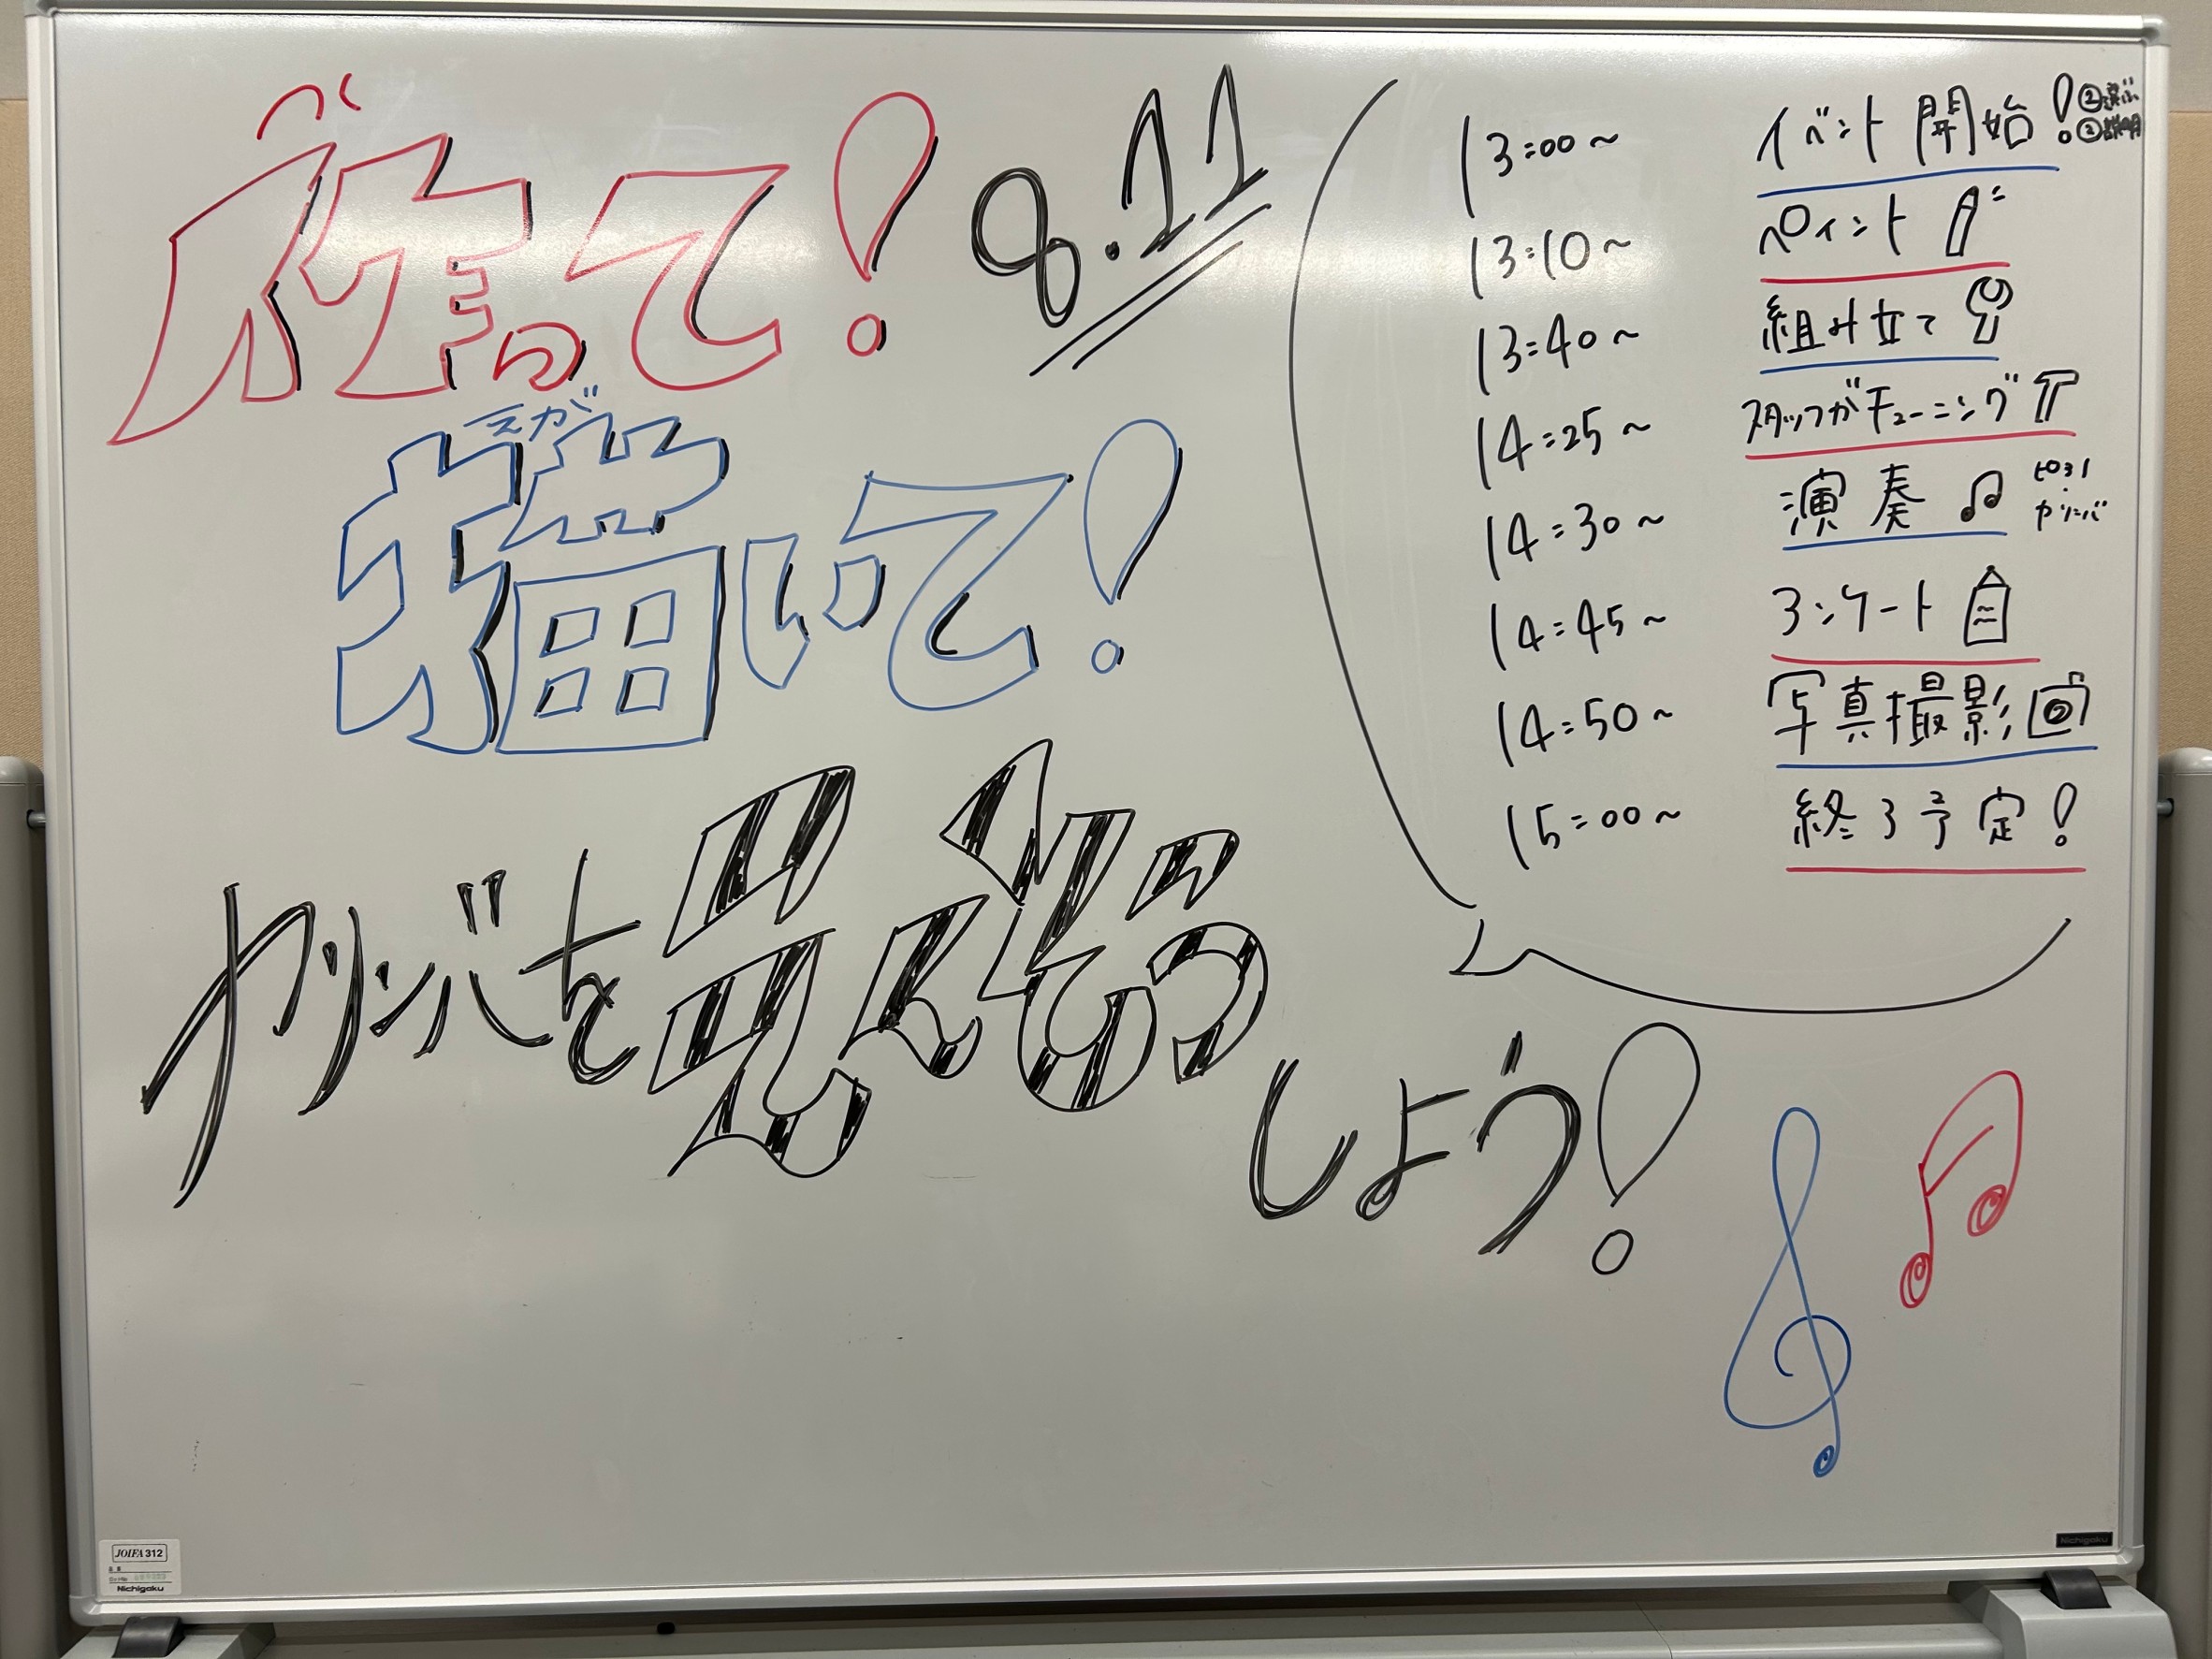 つく
作って!
8.11
えが
描いて!
カリンバをえんそうしよう!
13:00~ イベント開始!
13:10~ ペイント
13:40~ 組み立て
14:25~ スタッフがチューニング
14:30~ 演奏
カリンバ
14:45~ アンケート
14:50~ 写真撮影
15:00~ 終了予定!
JOIFA 312
Nichigaku
Nichigaku